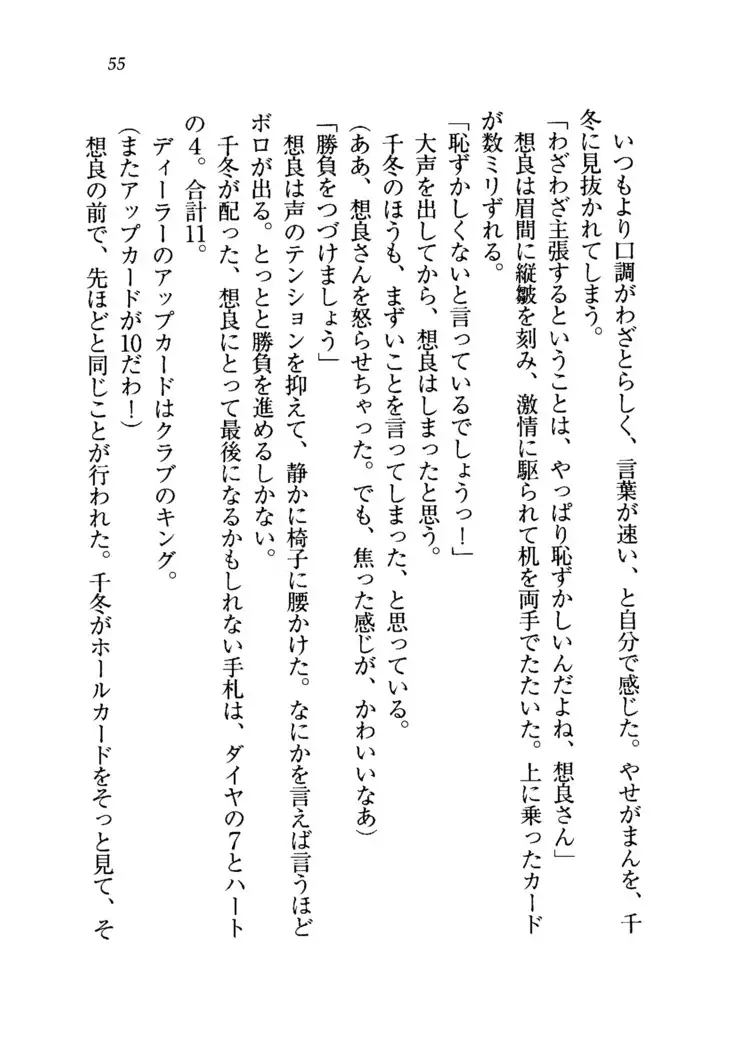 55
いつもより口調がわざとらしく、言葉が速い、と自分で感じた。やせがまんを、千
冬に見抜かれてしまう。
「わざわざ主張するということは、やっぱり恥ずかしいんだよね、想良さん」
想良は眉間に縦皺を刻み、激情に駆られて机を両手でたたいた。上に乗ったカード
が数ミリずれる。
「恥ずかしくないと言っているでしょうっ！」
大声を出してから、想良はしまったと思う。
千冬のほうも、まずいことを言ってしまった、と思っている。
(ああ、想良さんを怒らせちゃった。でも、焦った感じが、かわいいなあ)
「勝負をつづけましょう」
想良は声のテンションを抑えて、静かに椅子に腰かけた。なにかを言えば言うほど
ボロが出る。とっとと勝負を進めるしかない。
千冬が配った、想良にとって最後になるかもしれない手札は、ダイヤの7とハート
の4。合計11。
ディーラーのアップカードはクラブのキング。
(またアップカードが10だわ！)
想良の前で、先ほどと同じことが行われた。千冬がホールカードをそっと見て、そ